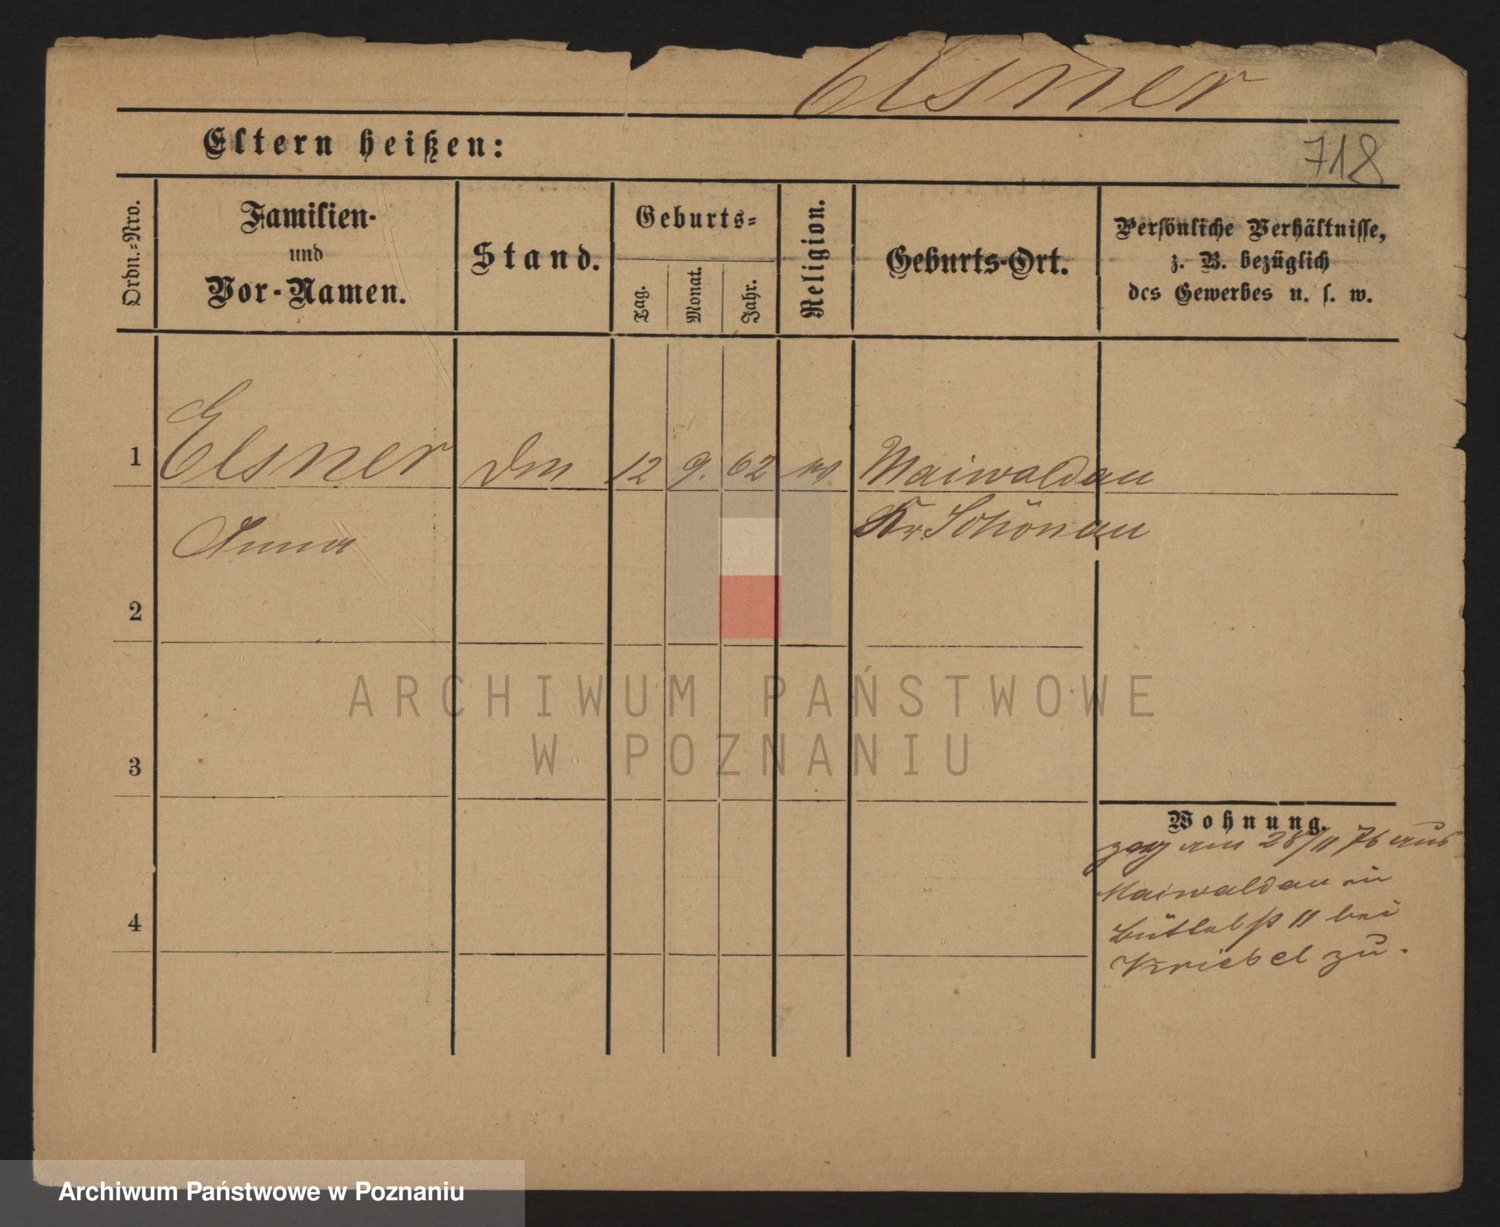 Elsner
718
Eltern heißen:
Ordn.-Nro.
Familien-
und
Vor-Namen.
Stand.
Geburts-
Tag.
Monat.
Jahr.
Religion.
Geburts-Ort.
Persönliche Verhältnisse,
z. B. bezüglich
des Gewerbes u. s. w.
1
Elsner
12 9. 62
Maiwaldau
Anna
Kr. Schönau
2
ARCHIWUM PAŃSTWOWE
W POZNANIU
3
Wohnung.
am 28/11 76 aus
Maiwaldau
11 bei
Kriebel zu.
4
Archiwum Państwowe w Poznaniu